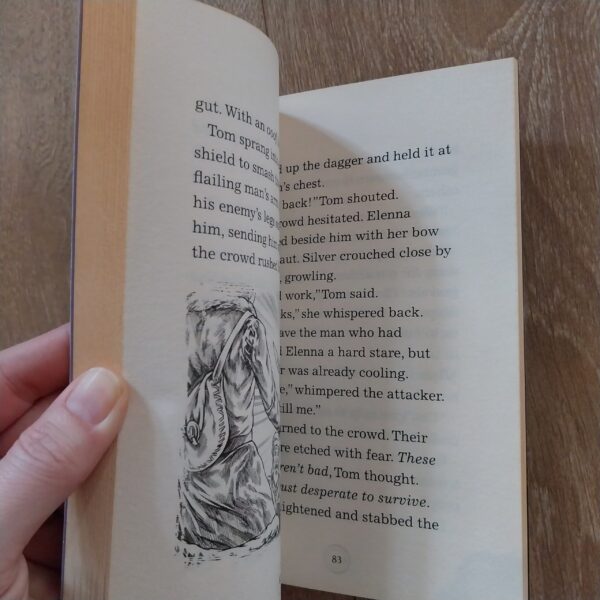 gut. With an
Tom sprang
shield to smash
flailing man's
his enemy's legs
him, sending
the crowd rushed
up the dagger and held it at
chest.
back!" Tom shouted.
hesitated. Elenna
beside him with her bow
Silver crouched close by
growling.
work," Tom said.
she whispered back.
the man who had
Elenna a hard stare, but
was already cooling.
whimpered the attacker.
me."
to the crowd. Their
etched with fear. These
bad, Tom thought.
desperate to survive.
and stabbed the
83